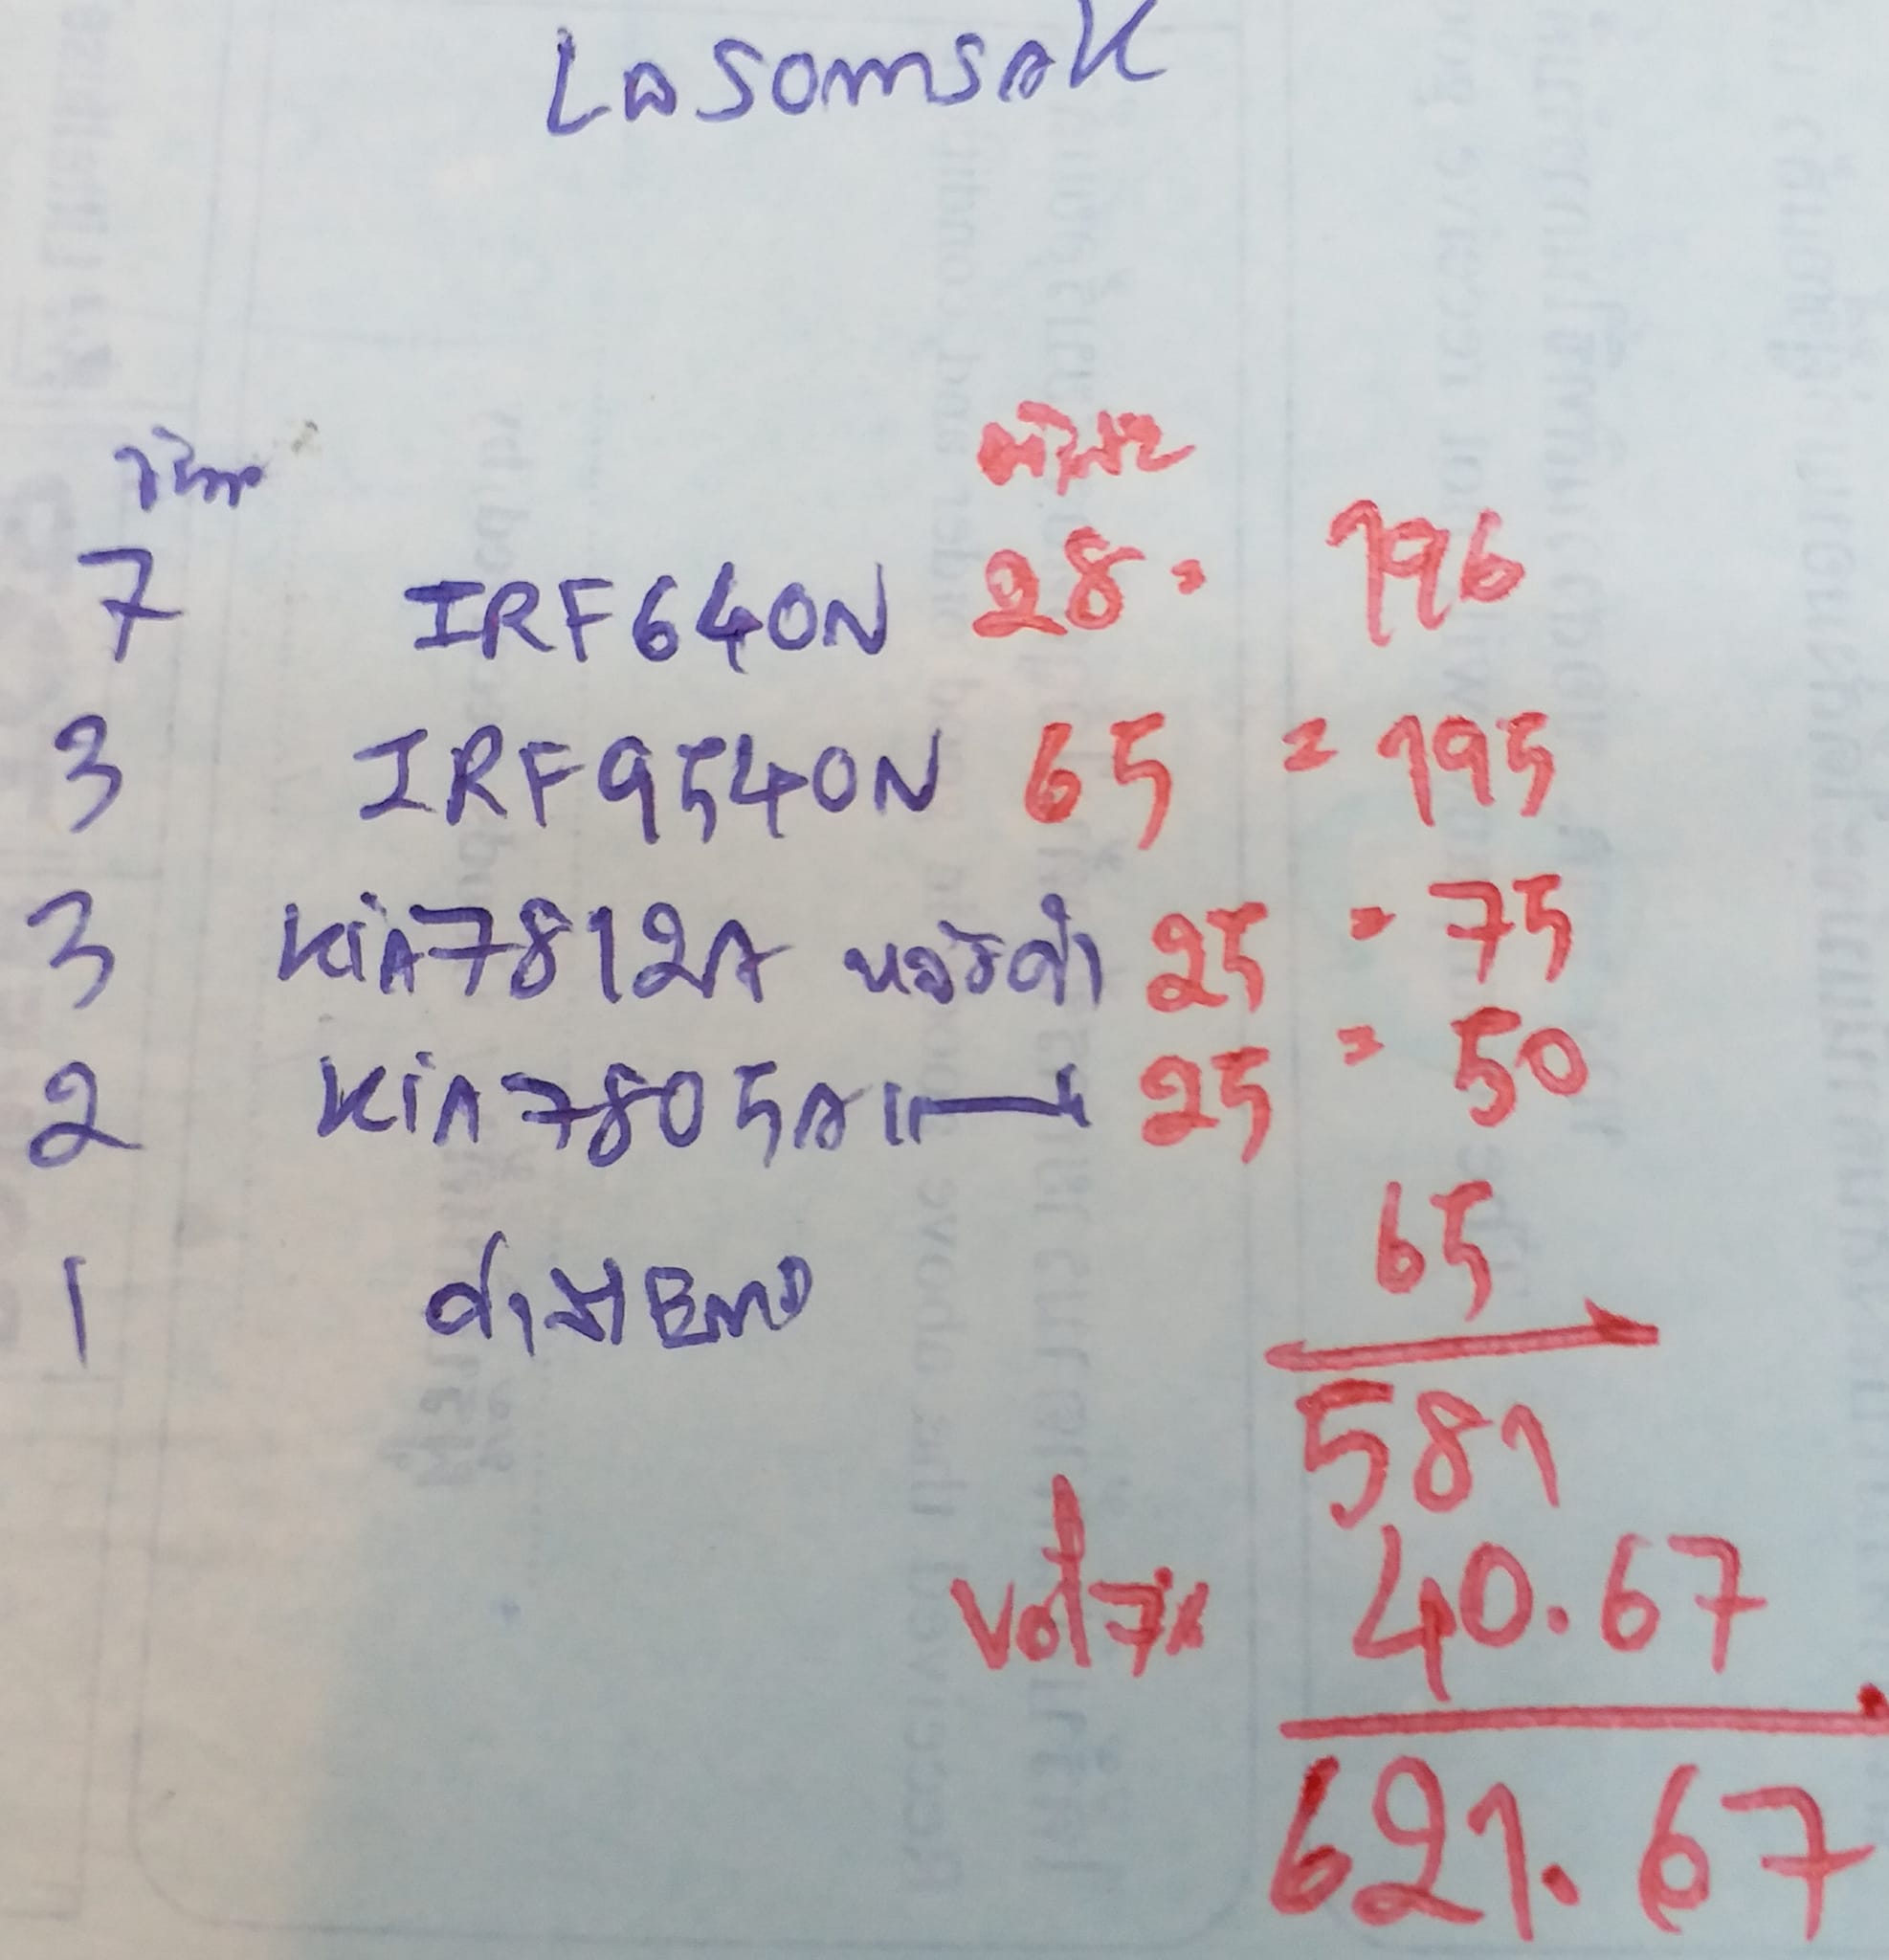 La somsak
จำนวน
7 IRF640N 28 = 196
3 IRF9540N 65 = 195
3 KiA7812A หลังดำ 25 = 75
2 KiA7805A "—— 25 = 50
1 ค่าส่ง EMS 65
581
Vat 7% 40.67
621.67